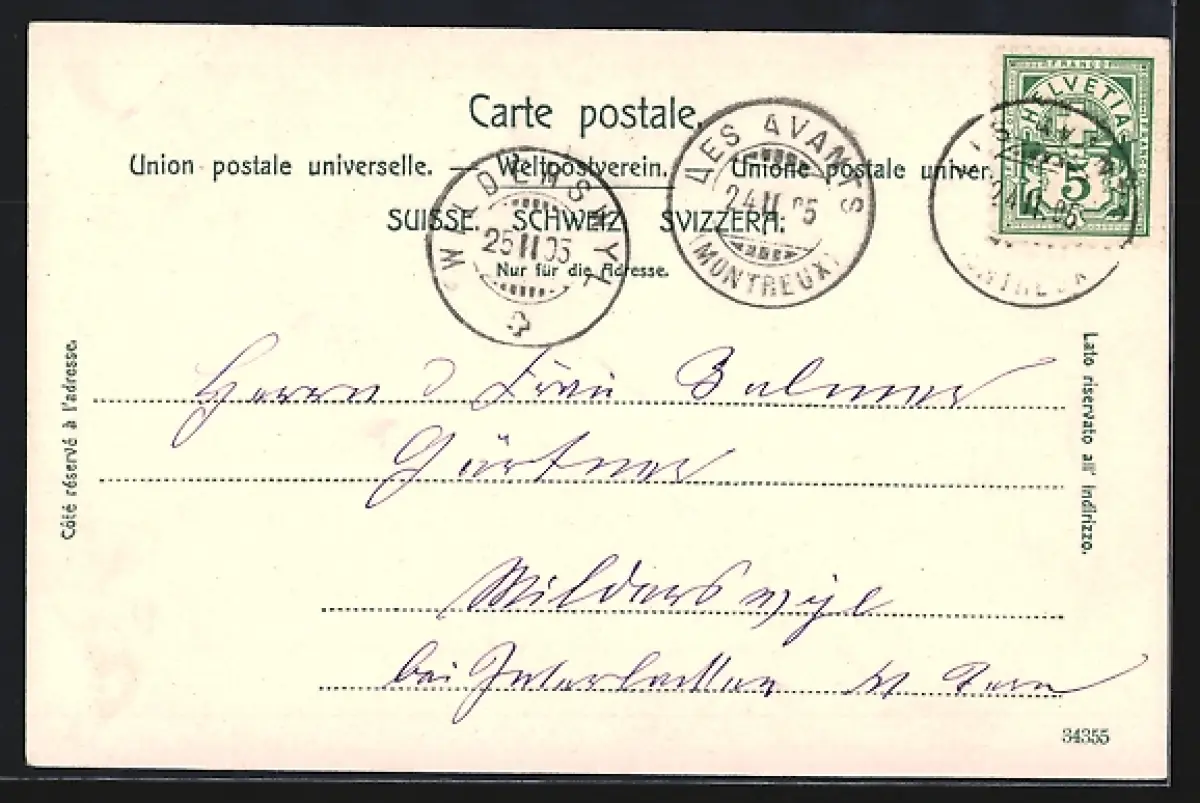 Carte postale.
Union postale universelle. — Weltpostverein. — Unione postale univer.
SUISSE. SCHWEIZ. SVIZZERA.
Nur für die Adresse.
FRANCO
HELVETIA
FRANCO
5
LES AVANTS
24 II 05
(MONTREUX)
WILDERSWYL
25 II 05
Côté réservé à l'adresse.
Lato riservato all' indirizzo.
Herrn & Frau Balmer
Gärtner
Wilderswyl
bei Interlaken Kt Bern
34355